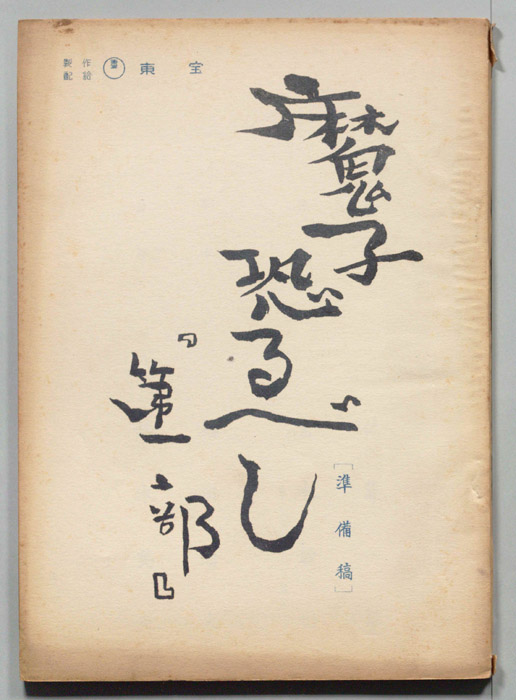 製作
配給
東宝
魔子
恐るべし
『第一部』
[準備稿]